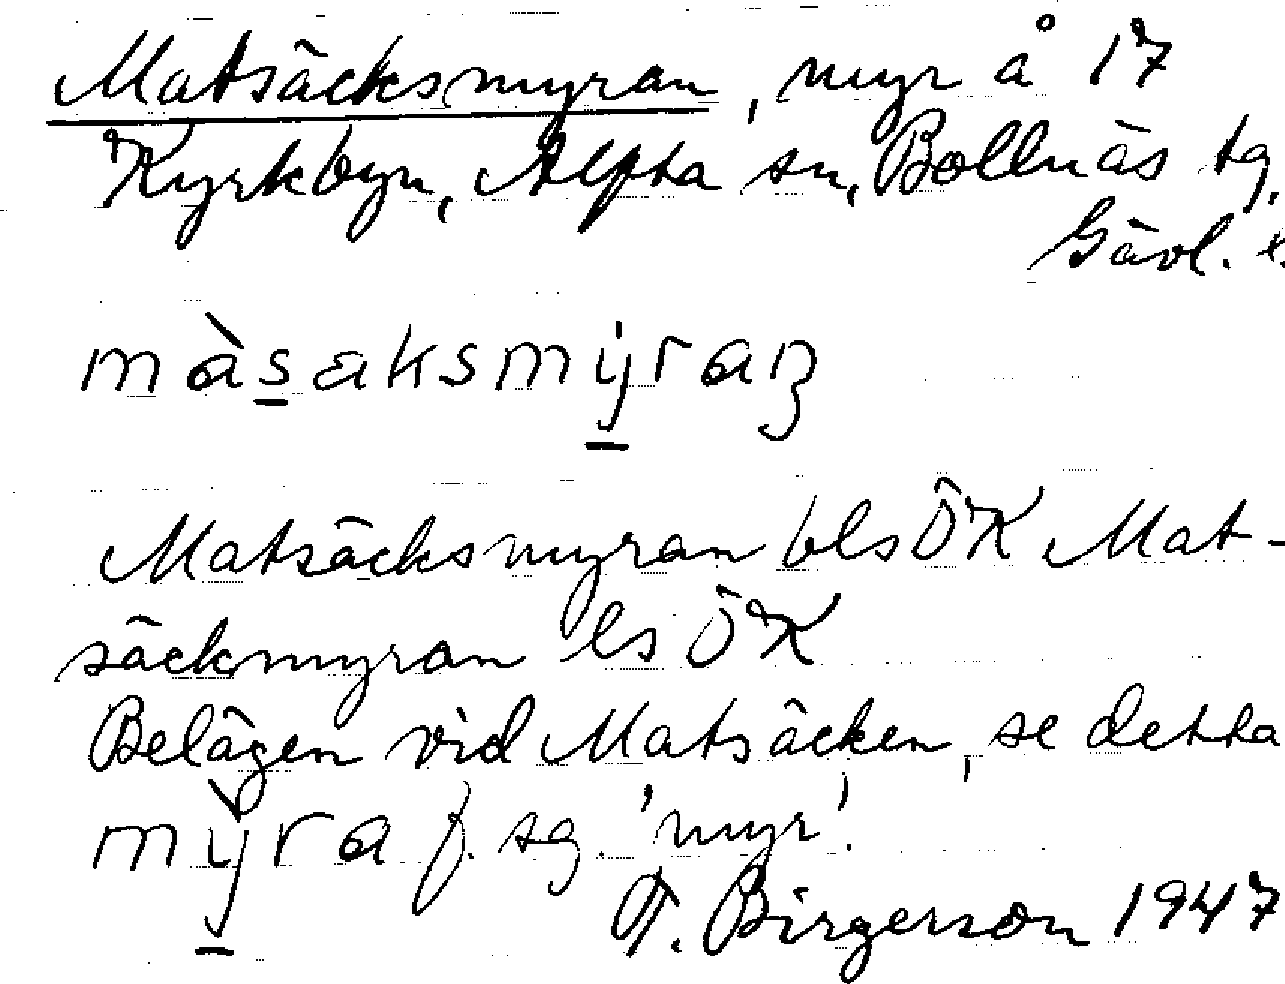 Matsäcksmyran, myr å 17
Kyrkbyn, Alfta sn, Bollnäs tg,
Gävl. l.
màsaksmyraɳ
Matsäcksmyran bls ÖK Mat-
säckmyran ls ÖK
Belägen vid Matsäcken, se detta
mỳra f. sg. 'myr'.
T. Birgerson 1947